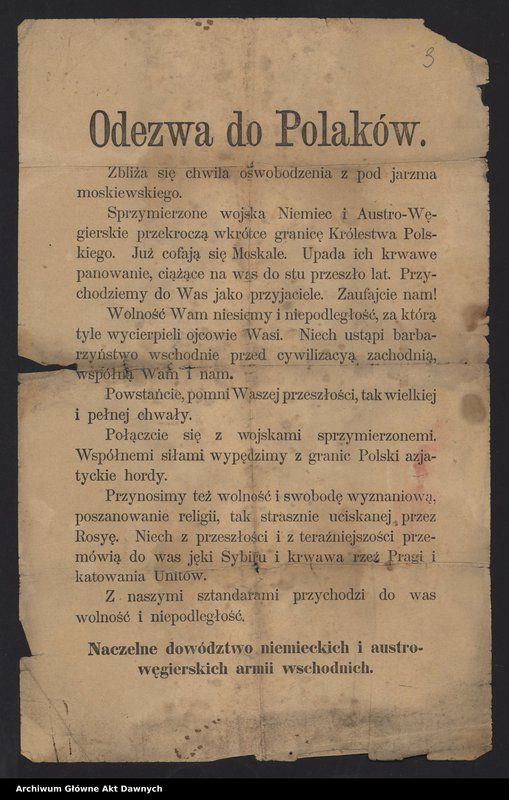 3
Odezwa do Polaków.
Zbliża się chwila oswobodzenia z pod jarzma
moskiewskiego.
Sprzymierzone wojska Niemiec i Austro-Wę-
gierskie przekroczą wkrótce granicę Królestwa Pols-
kiego. Już cofają się Moskale. Upada ich krwawe
panowanie, ciążące na was do stu przeszło lat. Przy-
chodziemy do Was jako przyjaciele. Zaufajcie nam!
Wolność Wam niesiemy i niepodległość, za którą
tyle wycierpieli ojcowie Wasi. Niech ustąpi barba-
rzyństwo wschodnie przed cywilizacyą zachodnią,
wspólną Wam i nam.
Powstańcie, pomni Waszej przeszłości, tak wielkiej
i pełnej chwały.
Połączcie się z wojskami sprzymierzonemi.
Wspólnemi siłami wypędzimy z granic Polski azja-
tyckie hordy.
Przynosimy też wolność i swobodę wyznaniową,
poszanowanie religii, tak strasznie uciskanej przez
Rosyę. Niech z przeszłości i z teraźniejszości prze-
mówią do was jęki Sybiru i krwawa rzeź Pragi i
katowania Unitów.
Z naszymi sztandarami przychodzi do was
wolność i niepodległość.
Naczelne dowództwo niemieckich i austro-
węgierskich armii wschodnich.
Archiwum Główne Akt Dawnych